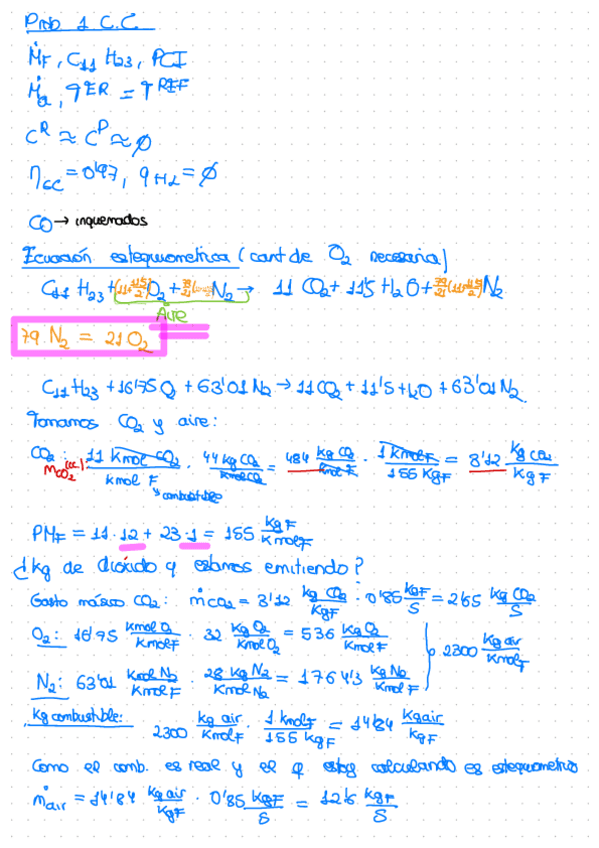 Prob 1 C.C.
ṀF, C11 H23, PCI
Ṁa, TER = TREF
CR ≈ CP ≈ ∅
ηcc = 0'97, qHL = ∅
CO → inquemados
Ecuación estequiometrica (cant de O2 necesaria)
C11 H23 + (11+11'5/2) O2 + 79/21 N2 → 11 CO2 + 11'5 H2O + 79/21 (11+11'5/2) N2
Aire
79 N2 = 21 O2
C11 H23 + 16'75 O2 + 63'01 N2 → 11 CO2 + 11'5 H2O + 63'01 N2
Tomamos CO2 y aire:
CO2: 11 Kmol CO2 / Kmol F · 44 Kg CO2 / Kmol CO2 = 484 Kg CO2 / Kmol F · 1 Kmol F / 155 Kg F = 3'12 Kg CO2 / Kg F
mCO2(cc)
combustible
PMF = 11 · 12 + 23 · 1 = 155 Kg F / Kmol F
¿1 kg de dióxido q estamos emitiendo?
Gasto másico CO2: ṁCO2 = 3'12 Kg CO2 / Kg F · 0'85 Kg F / S = 2'65 Kg CO2 / S
O2: 16'75 Kmol O2 / Kmol F · 32 Kg O2 / Kmol O2 = 536 Kg O2 / Kmol F
2300 Kg air / Kmol F
N2: 63'01 Kmol N2 / Kmol F · 28 Kg N2 / Kmol N2 = 1764'3 Kg N2 / Kmol F
Kg combustible:
2300 Kg air / Kmol F · 1 Kmol F / 155 Kg F = 14'84 Kg air / Kg F
Como el comb. es real y el q estoy calculando es estequiometrico
ṁair = 14'84 Kg air / Kg F · 0'85 Kg F / S = 12'6 Kg F / S